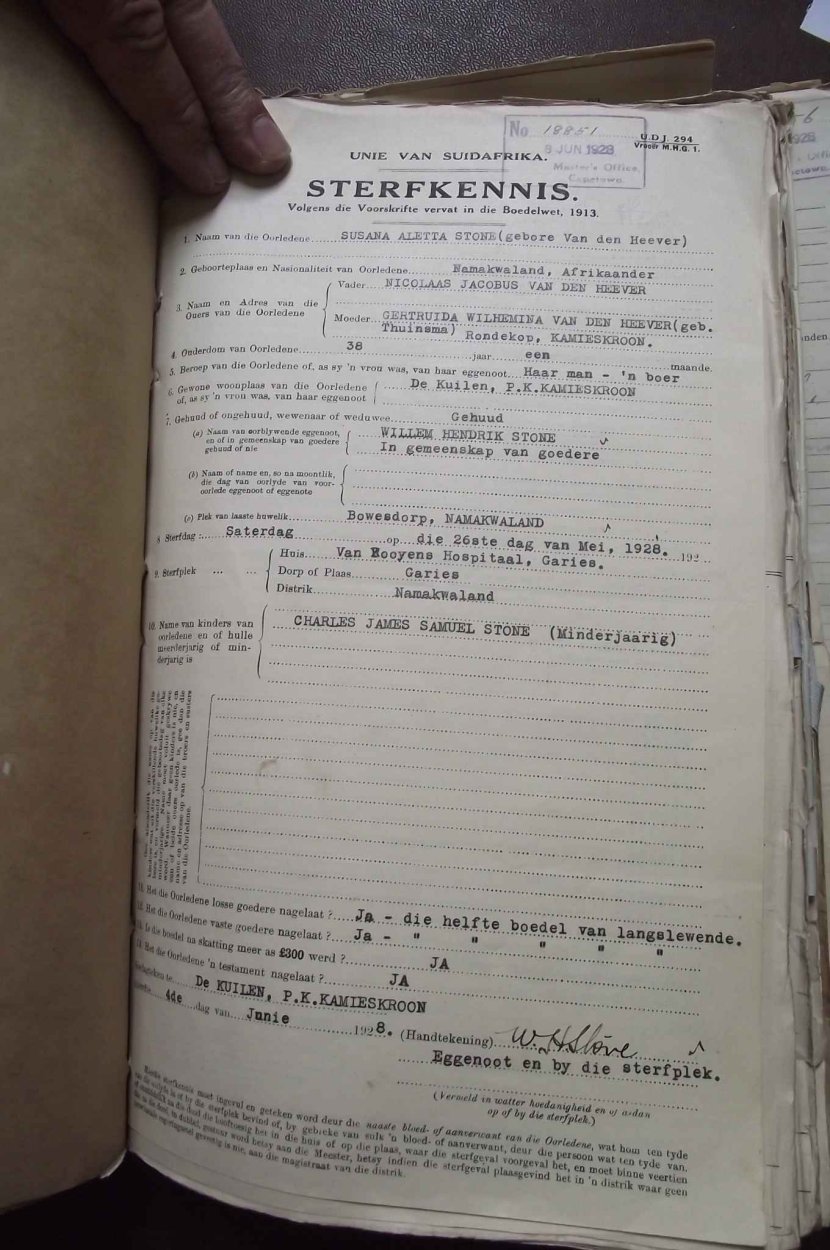 No 18851
8 JUN 1928
Master's Office
Capetown
U.D.J. 294
Vroeër M.H.G. 1.
UNIE VAN SUIDAFRIKA.
STERFKENNIS.
Volgens die Voorskrifte vervat in die Boedelwet, 1913.
1. Naam van die Oorledene SUSANA ALETTA STONE(gebore Van den Heever)
2. Geboorteplaas en Nasionaliteit van Oorledene Namakwaland, Afrikaander
3. Naam en Adres van die Ouers van die Oorledene
Vader NICOLAAS JACOBUS VAN DEN HEEVER
Moeder GERTRUIDA WILHEMINA VAN DEN HEEVER(geb.
Thuinsma) Rondekop, KAMIESKROON.
4. Ouderdom van Oorledene 38 jaar een maande.
5. Beroep van die Oorledene of, as sy 'n vrou was, van haar eggenoot Haar man - 'n boer
6. Gewone woonplaas van die Oorledene of, as sy 'n vrou was, van haar eggenoot De Kuilen, P.K.KAMIESKROON
7. Gehuud of ongehuud, wewenaar of weduwee Gehuud
(a) Naam van oorblywende eggenoot, WILLEM HENDRIK STONE
en of in gemeenskap van goedere In gemeenskap van goedere
gehuud of nie
(b) Naam of name en, so na moontlik,
die dag van oorlyde van voor-
oorlede eggenoot of eggenote
(c) Plek van laaste huwelik Bowesdorp, NAMAKWALAND
8 Sterfdag : Saterdag op die 26ste dag van Mei, 1928. 192
9. Sterfplek
Huis Van Rooyens Hospitaal, Garies.
Dorp of Plaas Garies
Distrik Namakwaland
10. Name van kinders van
oorledene en of hulle
meerderjarig of min-
derjarig is
CHARLES JAMES SAMUEL STONE (Minderjaarig)
11. Het die Oorledene losse goedere nagelaat ? Ja - die helfte boedel van langslewende.
12. Het die Oorledene vaste goedere nagelaat ? Ja - " " " " "
13. Is die boedel na skatting meer as £300 werd ? JA
14. Het die Oorledene 'n testament nagelaat ? JA
De KUILEN, P.K.KAMIESKROON
4de dag van Junie 1928. (Handtekening) W. H Stone
Eggenoot en by die sterfplek.
(Vermeld in watter hoedanigheid en of aldan
op of by die sterfplek.)
Hierdie sterfkennis moet ingevul en geteken word deur die naaste bloed- of aanverwant van die Oorledene, wat hom ten tyde
van die sterfplek bevind of, by gebreke van sulk 'n bloed- of aanverwant, deur die persoon wat ten tyde van
het in die huis of op die plaas, waar die sterfgeval voorgeval het, en moet binne veertien
aan die Meester, hetsy indien die sterfgeval plaasgevind het in 'n distrik waar geen
gevestig is nie, aan die magistraat van die distrik.